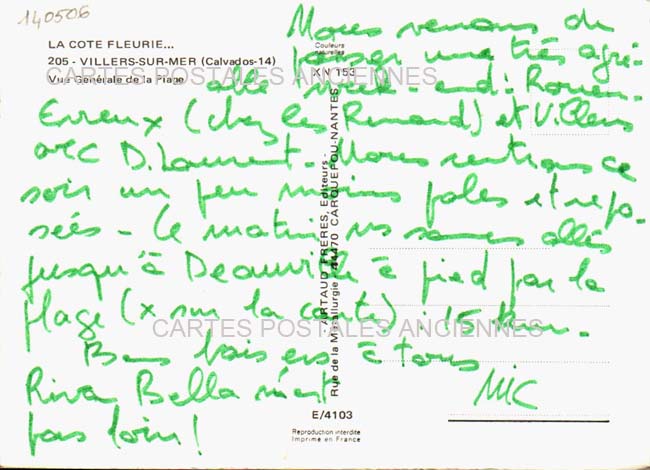 140506
LA COTE FLEURIE...
205 - VILLERS-SUR-MER (Calvados-14)
Vue Générale de la Plage
Couleurs naturelles
XN 153
CARTES POSTALES ANCIENNES
Nous venons de
passer une très agré-
able week-end: Rouen-
Evreux (chez les Renard) et Villers
avec D. Laurent. Nous rentrons ce
soir un peu moins pales et repo-
sées - Ce matin ns sommes allés
jusqu'à Deauville à pied par la
plage (x sur la carte): 15 km.
CARTES POSTALES ANCIENNES
Bons baisers à tous
Riva Bella n'est
pas loin!
MIC
ARTAUD FRÈRES, Editeurs -
Rue de la Métallurgie - 44470 CARQUEFOU-NANTES
E/4103
Reproduction interdite
Imprimé en France